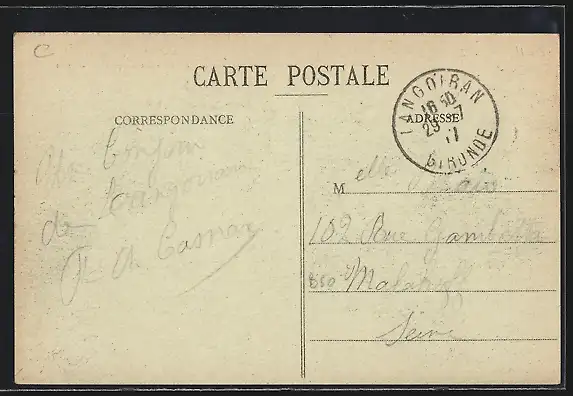 C
CARTE POSTALE
CORRESPONDANCE
ADRESSE
LANGOIRAN
18 30
29 -7
17
GIRONDE
Un bonjour
de Langoiran
M elle
102 Rue Gambetta
Malakoff
Seine